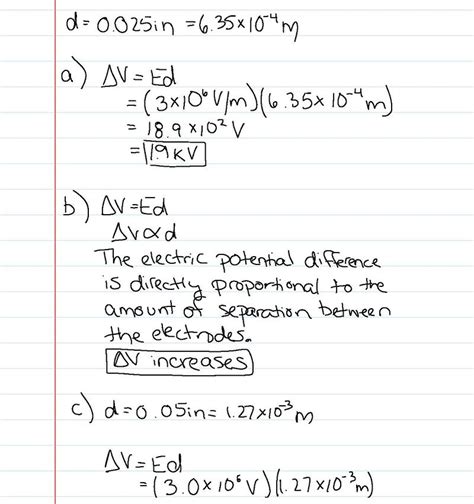 d = 0.025in = 6.35×10⁻⁴ m
a) ΔV = Ed
= (3×10⁶ V/m)(6.35×10⁻⁴ m)
= 18.9 ×10² V
= 1.9 KV
b) ΔV = Ed
ΔV ∝ d
The electric potential difference
is directly proportional to the
amount of separation between
the electrodes.
ΔV increases
c) d = 0.05in = 1.27×10⁻³ m
ΔV = Ed
= (3.0×10⁶ V)(1.27×10⁻³ m)